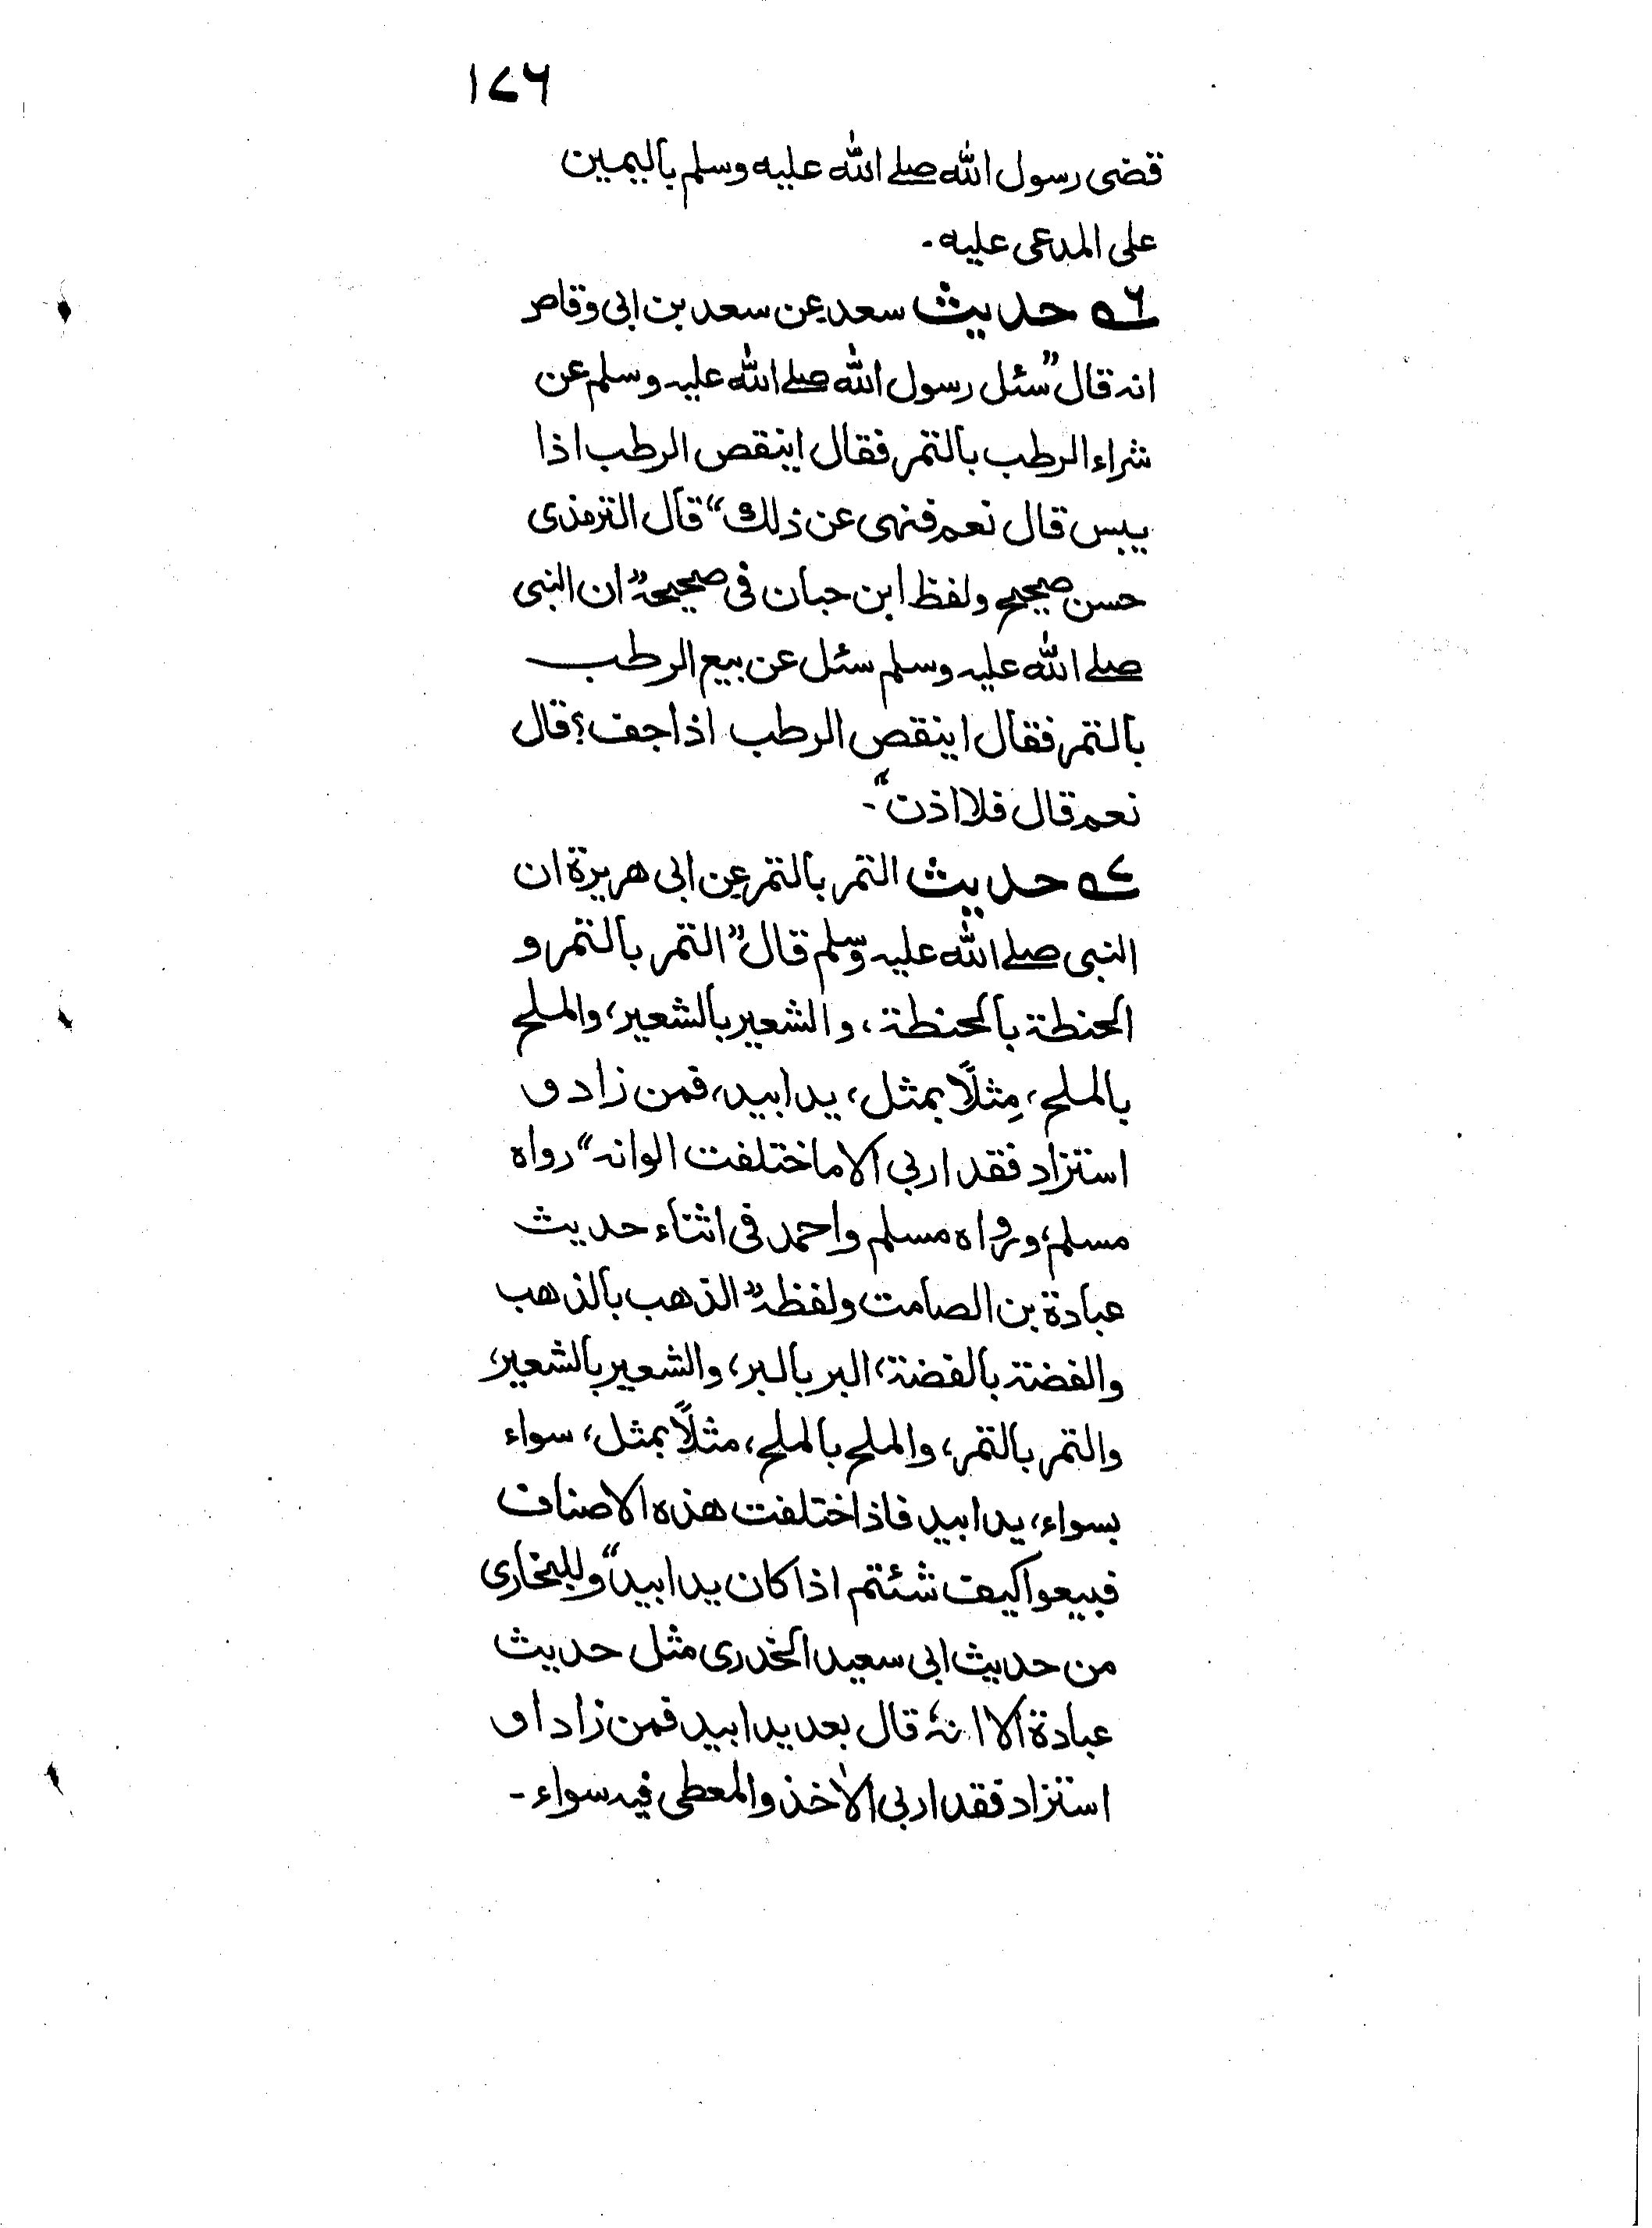 ۱۷۶
قضی رسول اللّٰه صلے اللّٰه علیه وسلم بالیمین
علی المدعی علیه۔
۵۶ حدیث سعد عن سعد بن ابی وقاص
انه قال ”سئل رسول اللّٰه صلے اللّٰه علیه وسلم عن
شراء الرطب بالتمر فقال اینقص الرطب اذا
یبس قال نعم فنهی عن ذلك“ قال الترمذی
حسن صحیح ولفظ ابن حبان فی صحیحه ”ان النبی
صلے اللّٰه علیه وسلم سئل عن بیع الرطب
بالتمر فقال اینقص الرطب اذا جف؟ قال
نعم قال فلا اذن“۔
۵۷ حدیث التمر بالتمر عن ابی هریرة ان
النبی صلے اللّٰه علیه وسلم قال ”التمر بالتمر و
الحنطة بالحنطة، والشعیر بالشعیر، والملح
بالملح، مِثلًا بمثل، یدا بید، فمن زاد و
استزاد فقد اربی الا ما ختلفت الوانه“ رواه
مسلم، ورواه مسلم واحمد فی اثناء حدیث
عبادة بن الصامت ولفظه ”الذهب بالذهب
والفضة بالفضة، البر بالبر، والشعیر بالشعیر،
والتمر بالتمر، والملح بالملح، مثلًا بمثل، سواء
بسواء، یدا بید فاذا ختلفت هذه الاصناف
فبیعوا کیف شئتم اذا کان یدا بید“ وللبخاری
من حدیث ابی سعید الخدری مثل حدیث
عبادة الا انهٗ قال بعد یدا بید فمن زاد او
استزاد فقد اربی الاٰخذ والمعطی فیه سواء۔